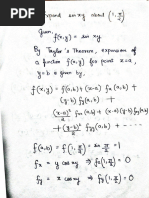 Expand sin xy about (1, π/2)
Given,
f(x,y) = sin xy
By Taylor's Theorem, expansion of
a function f(x,y) for point x=a,
y=b is given by,
f(x,y) = f(a,b) + (x-a) fx(a,b) +
(y-b) fy(a,b) +
(x-a)²/2 fxx(a,b) + (x-a)(y-b) fxy(a,b)
+ (y-b)²/2 fyy(a,b) + ...
f(a,b) = f(1, π/2) = sin π/2 = 1
fx = y cos xy ⇒ fx(1, π/2) = 0
fy = x cos xy ⇒ fy(1, π/2) = 0